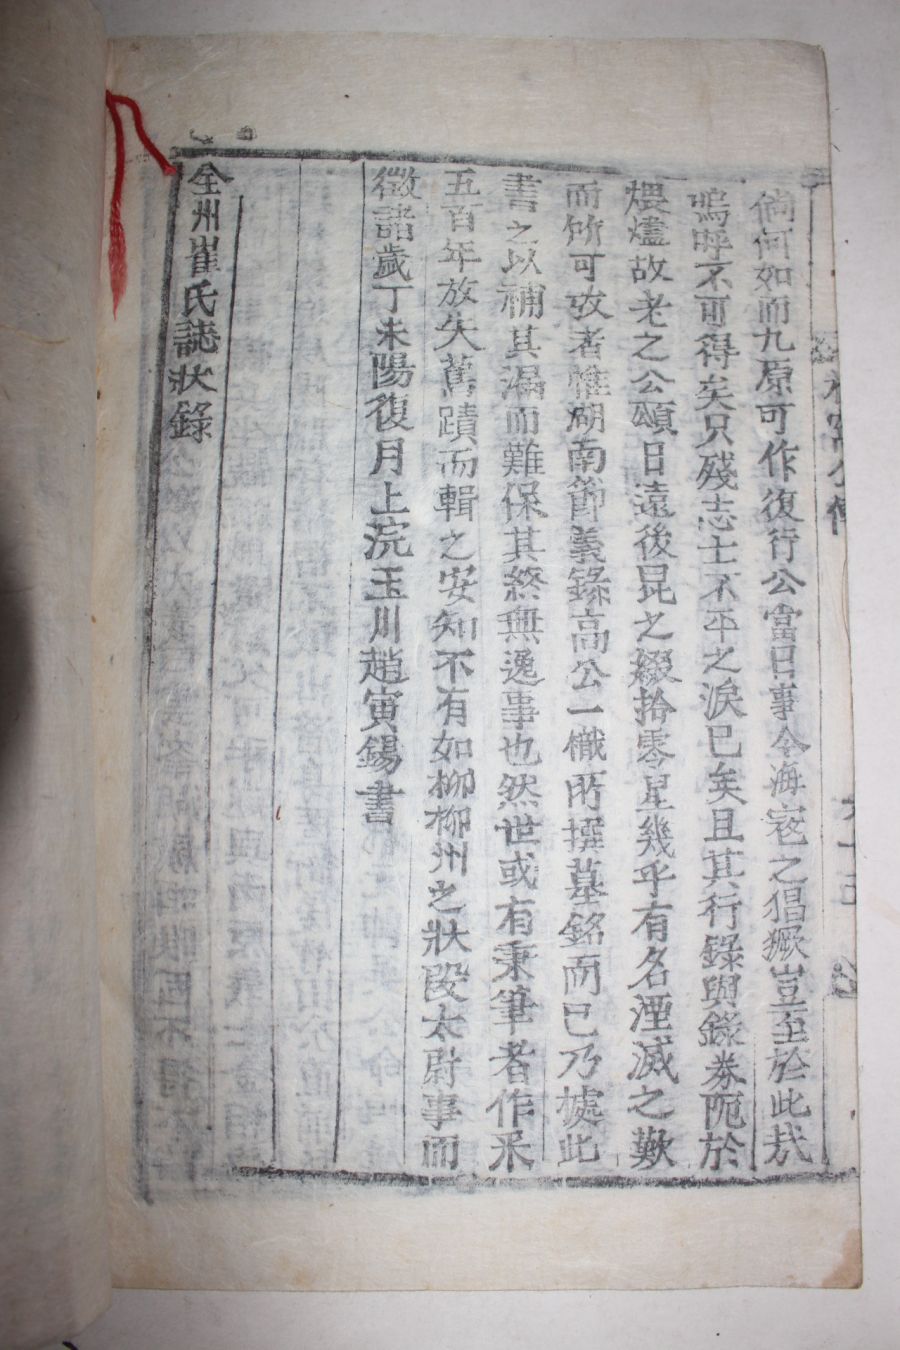 倘何如而九原可作復行公當日事今海寇之猖獗豈至於此哉
嗚呼不可得矣只殘志士不平之淚已矣且其行錄與錄券阨於
煨燼故老之公頌日遠後昆之綴拾零星幾乎有名湮滅之歎
而所可攷者惟湖南節義錄高公一幟所撰墓銘而已乃據此
書之以補其漏而難保其終無逸事也然世或有秉筆者作采
五百年放失舊蹟而輯之安知不有如柳柳州之狀段太尉事而
徵諸歲丁未陽復月上浣玉川趙寅錫書
全州崔氏誌狀錄